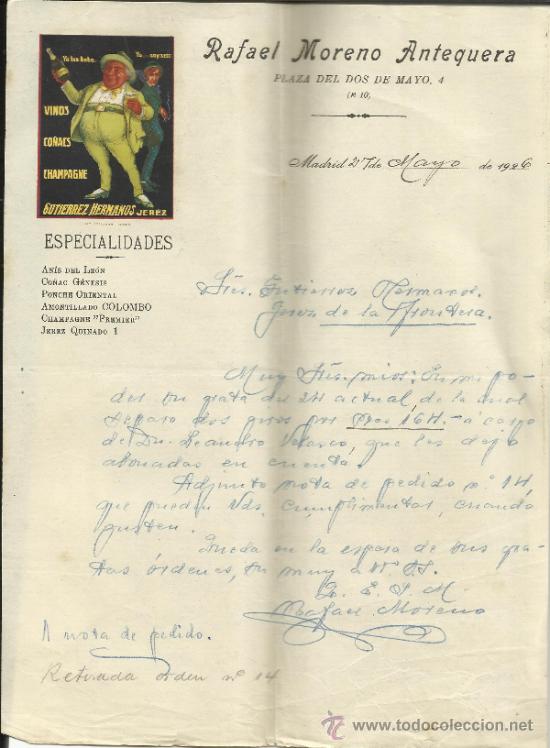 Rafael Moreno Antequera
PLAZA DEL DOS DE MAYO, 4
Madrid 27 de Mayo de 1926
Yo los bebo.
VINOS
COÑACS
CHAMPAGNE
GUTIERREZ HERMANOS JEREZ
ESPECIALIDADES
ANÍS DEL LEÓN
COÑAC GÉNESIS
PONCHE ORIENTAL
AMONTILLADO COLOMBO
CHAMPAGNE "PREMIER"
JEREZ QUINADO 1
Sres. Gutierrez Hermanos.
Jerez de la Frontera.
Muy Sres. mios: En mi po-
der su grata del 24 actual, de la cual
separo dos giros por 164.- á cargo
de Dn. Leandro Velasco, que les dejo
abonadas en cuenta.
Adjunto nota de pedido nº 14,
que pueden Vds. cumplimentar, cuando
gusten.
Queda en la espera de sus gra-
tas órdenes, su muy a
Q. E. S. M.
Rafael Moreno
1 nota de pedido.
Retirada orden nº 14
www.todocoleccion.net